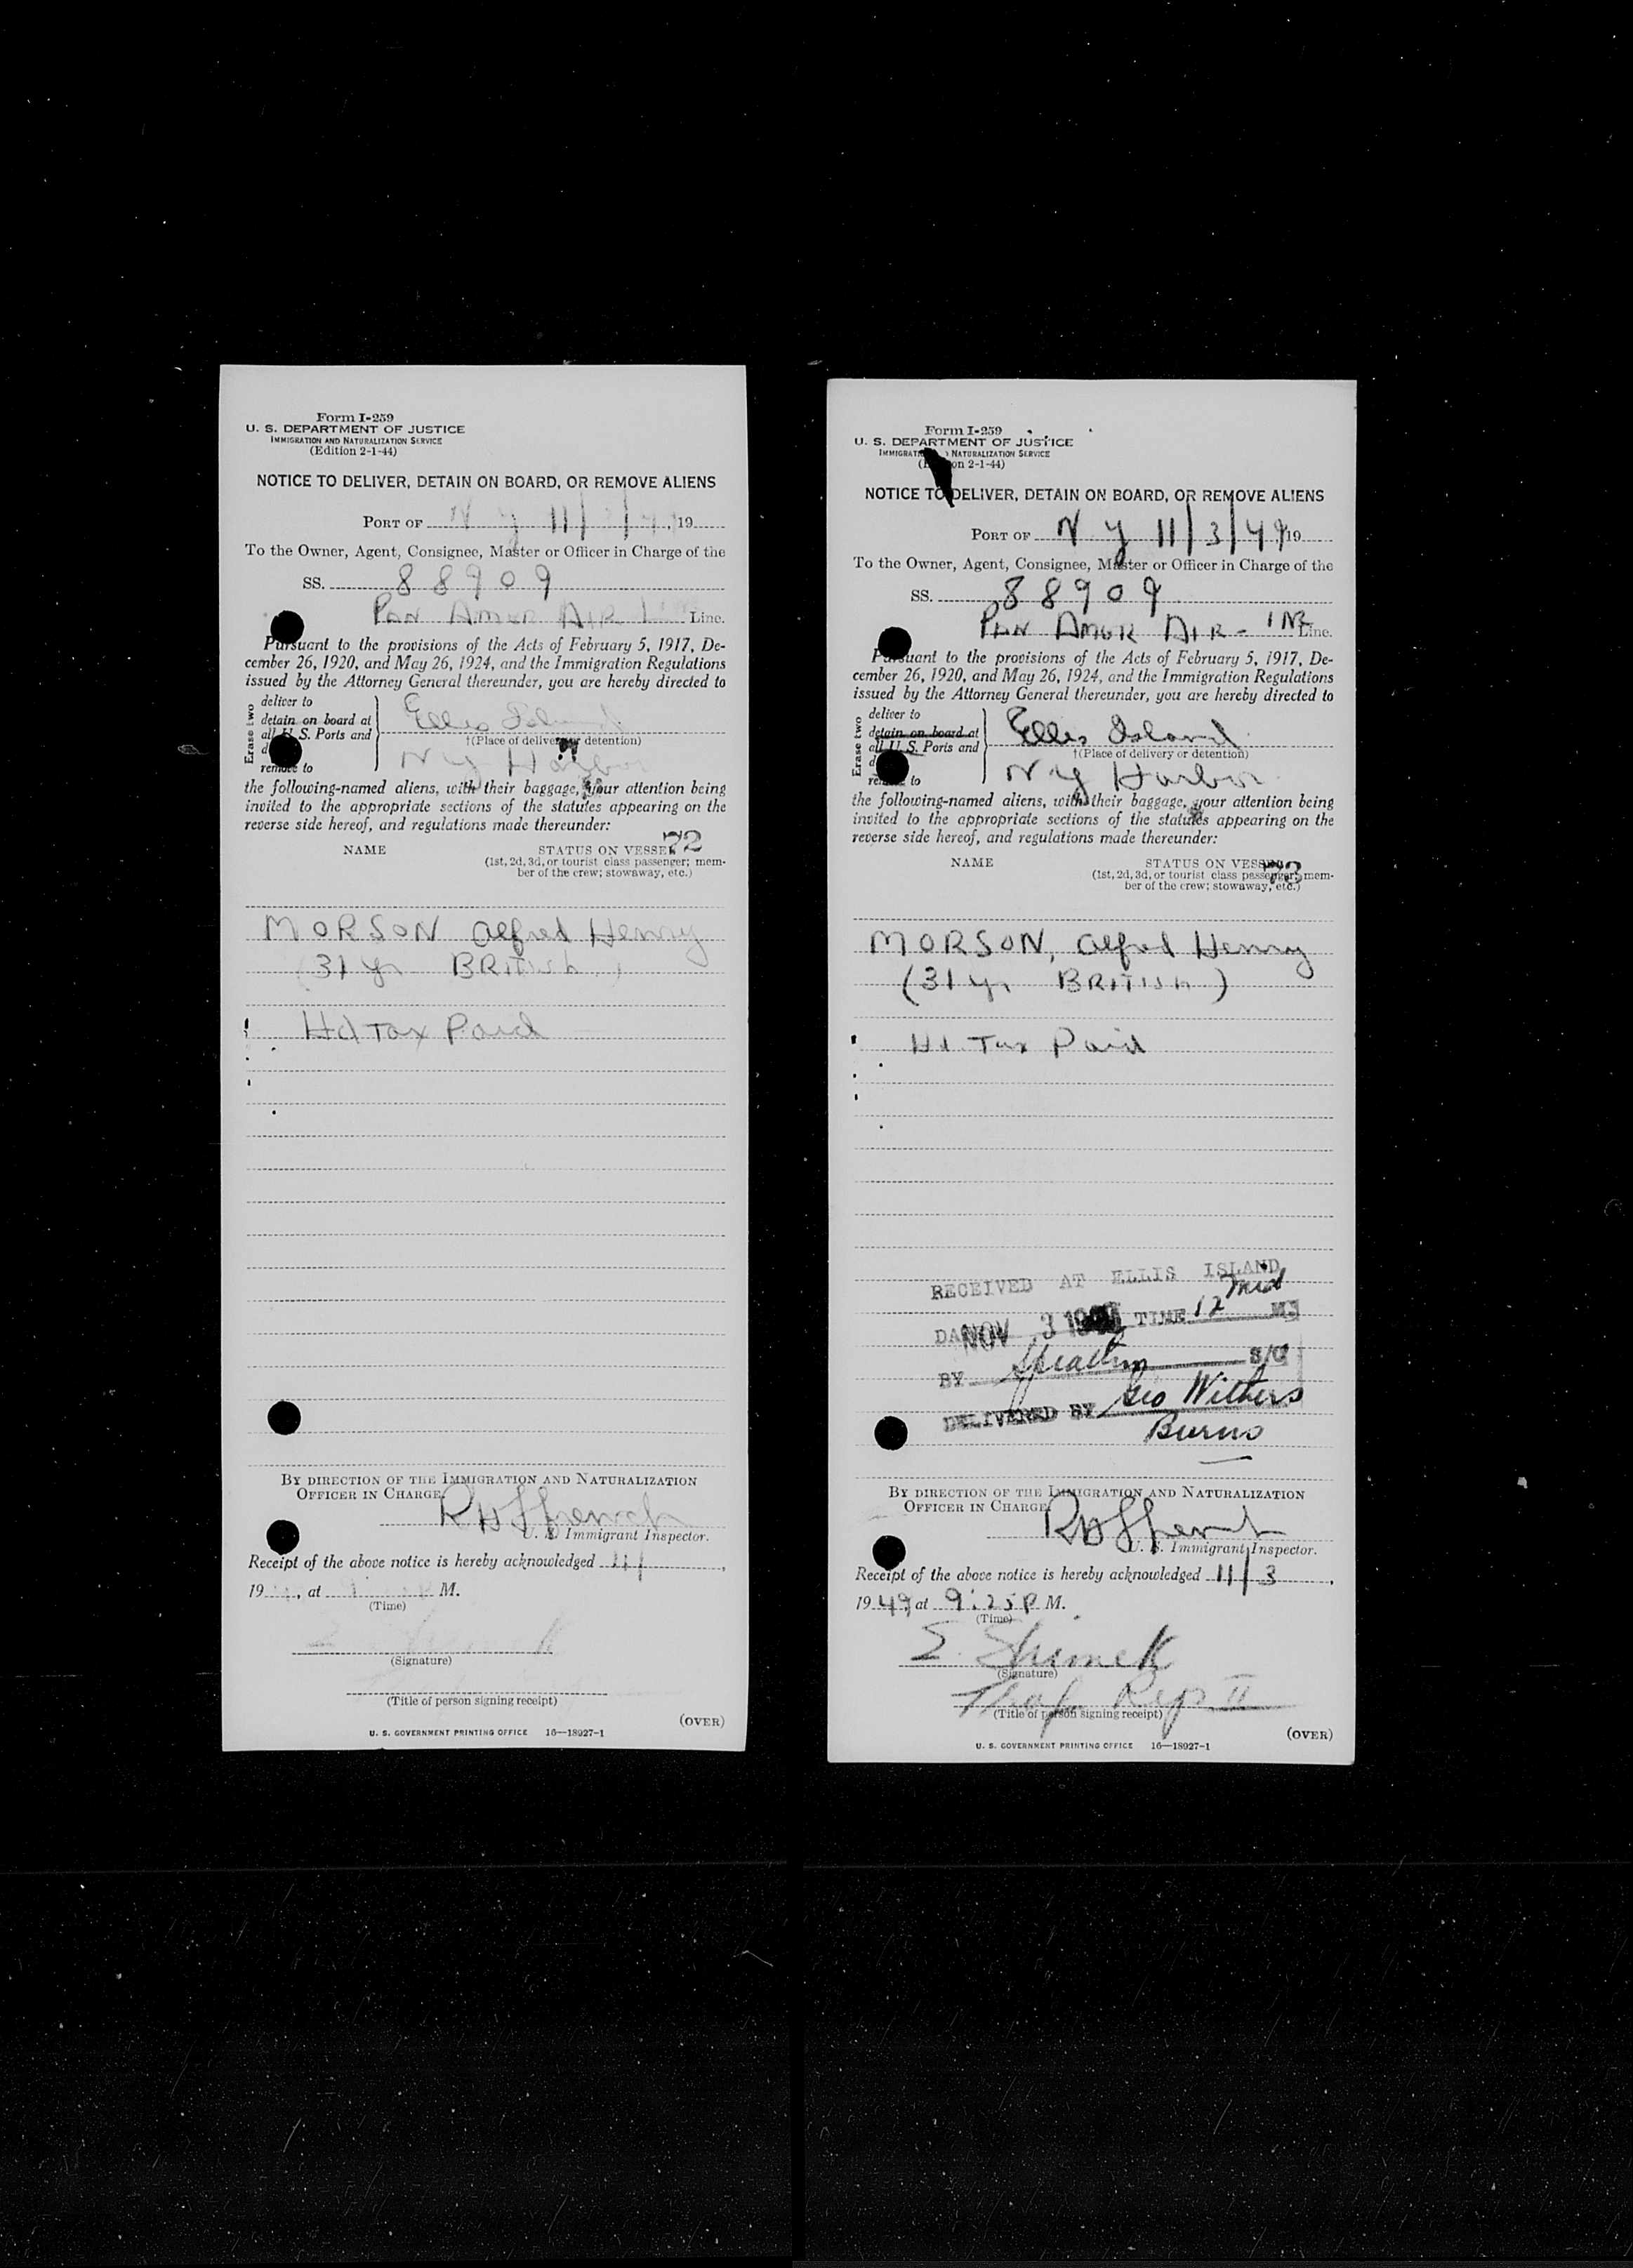 Form I-259
U. S. DEPARTMENT OF JUSTICE
IMMIGRATION AND NATURALIZATION SERVICE
(Edition 2-1-44)
NOTICE TO DELIVER, DETAIN ON BOARD, OR REMOVE ALIENS
PORT OF N Y 11/3/49, 19
To the Owner, Agent, Consignee, Master or Officer in Charge of the
SS. 88909
PAN AMER AIR Line.
Pursuant to the provisions of the Acts of February 5, 1917, De-
cember 26, 1920, and May 26, 1924, and the Immigration Regulations
issued by the Attorney General thereunder, you are hereby directed to
Erase two
deliver to
detain on board at
all U. S. Ports and
remove to
Ellis Island
†(Place of delivery or detention)
N Y Harbor
the following-named aliens, with their baggage, your attention being
invited to the appropriate sections of the statutes appearing on the
reverse side hereof, and regulations made thereunder:
NAME STATUS ON VESSEL 72
(1st, 2d, 3d, or tourist class passenger; mem-
ber of the crew; stowaway, etc.)
MORSON Alfred Henry
(31 yr BRITISH)
Hd Tax Paid
BY DIRECTION OF THE IMMIGRATION AND NATURALIZATION
OFFICER IN CHARGE.
U. S. Immigrant Inspector.
Receipt of the above notice is hereby acknowledged 11/
19 , at P M.
(Time)
E. Shimek
(Signature)
(Title of person signing receipt)
U. S. GOVERNMENT PRINTING OFFICE 16—18927-1
(OVER)
Form I-259
U. S. DEPARTMENT OF JUSTICE
IMMIGRATION AND NATURALIZATION SERVICE
(Edition 2-1-44)
NOTICE TO DELIVER, DETAIN ON BOARD, OR REMOVE ALIENS
PORT OF N Y 11/3/49 19
To the Owner, Agent, Consignee, Master or Officer in Charge of the
SS. 88909
PAN AMER AIR - INE Line.
Pursuant to the provisions of the Acts of February 5, 1917, De-
cember 26, 1920, and May 26, 1924, and the Immigration Regulations
issued by the Attorney General thereunder, you are hereby directed to
Erase two
deliver to
detain on board at
all U. S. Ports and
remove to
Ellis Island
†(Place of delivery or detention)
N Y Harbor
the following-named aliens, with their baggage, your attention being
invited to the appropriate sections of the statutes appearing on the
reverse side hereof, and regulations made thereunder:
NAME STATUS ON VESSEL 73
(1st, 2d, 3d, or tourist class passenger; mem-
ber of the crew; stowaway, etc.)
MORSON, Alfred Henry
(31 yr BRITISH)
Hd Tax Paid
RECEIVED AT ELLIS ISLAND
DATE NOV 3 TIME 12 Mid M
BY S/O
DELIVERED BY Geo Withers
Burns
BY DIRECTION OF THE IMMIGRATION AND NATURALIZATION
OFFICER IN CHARGE.
U. S. Immigrant Inspector.
Receipt of the above notice is hereby acknowledged 11/3,
19 49 at 9:25 P M.
(Time)
E. Shimek
(Signature)
Traf. Rep II
(Title of person signing receipt)
U. S. GOVERNMENT PRINTING OFFICE 16—18927-1
(OVER)